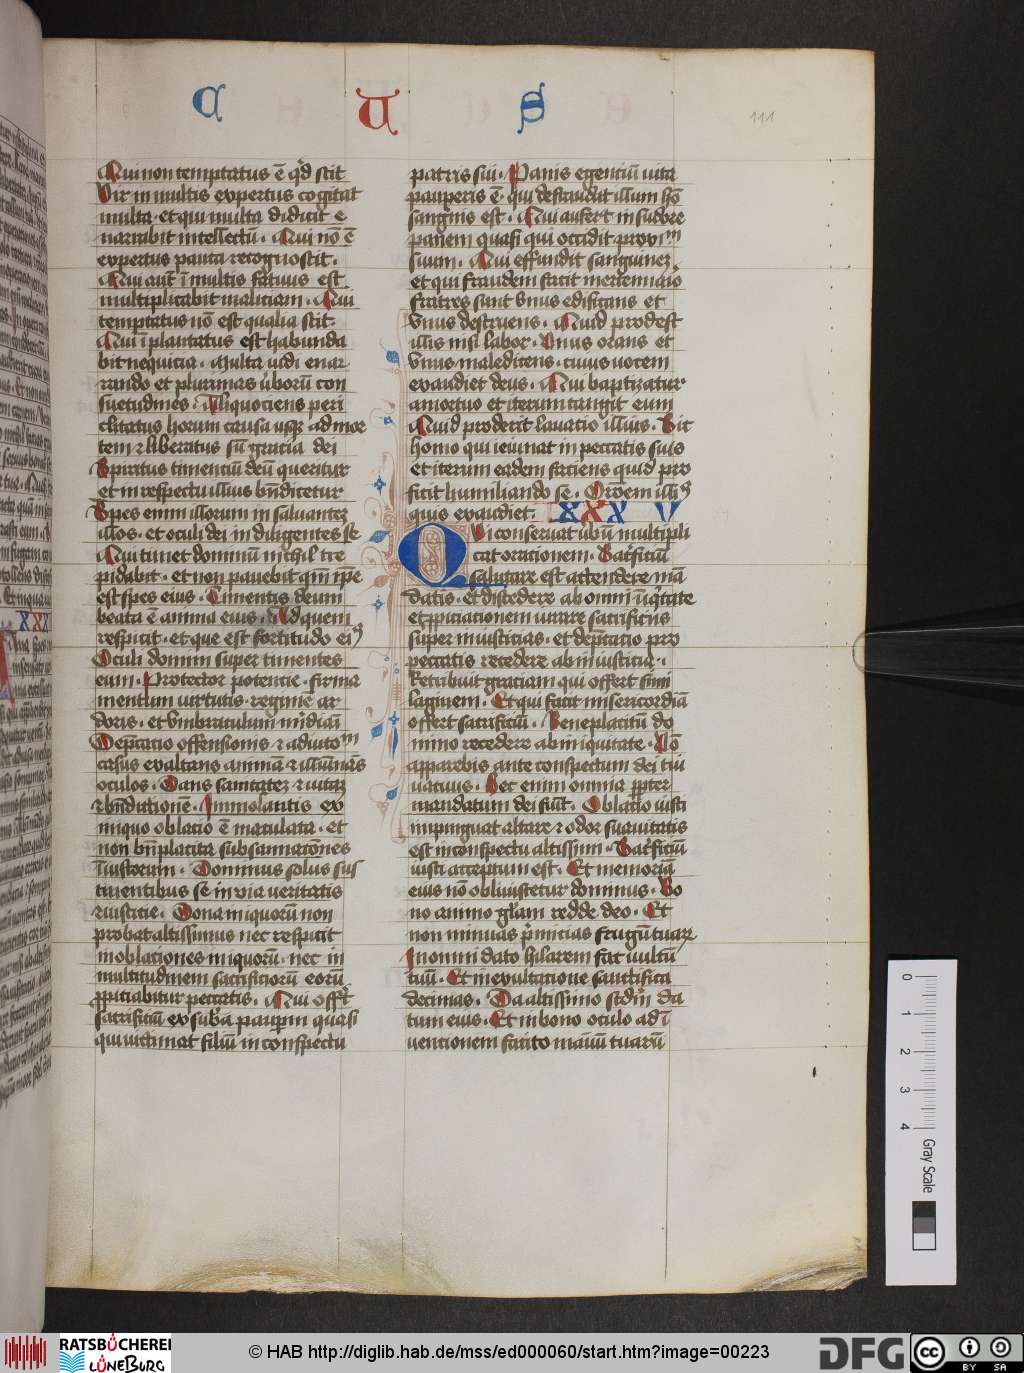 C U S
111
Qui non temptatus ē qͥd scit
Vir in multis expertus cogitat
multa · et qui multa didicit e
narrabit intellectū · Qui nō ē
expertus pauca recognoscit ·
Qui autͥ ī multis fatuus est
multiplicabit maliciam · Qui
temptatus nō est qualia scit ·
Qui īplantatus est habunda
bit nequicia · Multa uidi enar
rando et plurimas ūborū con
suetudines · Aliquociens peri
clitatus horum causa usqꝫ ad mor
tem ⁊ liberatus sū gracia dei
Spiritus timenciū deū queritur
et in respectu illius bn̄dicetur
Spes enim illorum in saluantez
illos · et oculi dei in diligentes se
Qui timet dominū nichil tre
pidabit · et non pauebit qm̄ ip̄e
est spes eius · Timentis deum
beata ē anima eius · Ad quem
respicit · et que est fortitudo eiꝰ
Oculi domini super timentes
eum · Protector potencie · firma
mentum uirtutis · regimē ar
doris · et vmbraculum mͥdiaā
Dep̄catio offensionis ⁊ adiutoᵐ
casus exaltans animā ⁊ illūinās
oculos · Dans sanitatez ⁊ uitāꝫ
⁊ bn̄dictionē · Immolantis ex
iniquo oblacio ē maculata · et
non bn̄placita subsannatōnes
īiustorum · Dominus solus sus
tinentibus se in via ueritatis
⁊ iusticie · Dona iniquorū non
probat altissimus nec respicit
in oblationes iniquorū · nec in
multitudinem sacrificiorū eorū
ꝓpiciabitur peccatis · Qui offᵗ
sacrificiū ex sub̄a pauꝑum quasi
qui uictimat filiū in conspectu
patris sui · Panis egenciū uita
pauperis ē · qui defraudat illum hō
sanguis est · Qui aufert in sudore
panem quasi qui occidit proxiᵐ
suum · Qui effundit sanguinez
et qui fraudem facit mercennario
fratres sunt Vnus edificans et
Vnus destruens · Quid prodest
illis nisi labor · Vnus orans et
Vnus maledicens · cuius uocem
exaudiet deus · Qui baptizatur
a mortuo et iterum tangit eum
Quid proderit lauatio illīus · Sic
homo qui ieiunat in peccatis suis
et iterum eadem faciens quid pro
ficit humiliando se · Orōem illiꝰ
quis exaudiet · XXXV
Qui conseruat ūbū multipli
cat orationem · Sacͥficiū
salutare est attendere mā
datis · et discedere ab omni īiq̄tate
et ꝓpiciationem litare sacrificiis
super iniusticias · et dep̄catio pro
peccatis recedere ab iniusticia ·
Retribuit graciam qui offert simi
laginem · Et qui facit misericordiā
offert sacrificiū · Beneplacitū do
mino recedere ab iniquitate · Nō
apparebis ante conspectum dei tui
uacuus · hec enim omnia ꝓpter
mandatum dei fiūt · Oblacio iusti
inpinguat altare ⁊ odor suauitatis
est in conspectu altissimi · Sacͥficiū
iusti acceptum est · Et memoriā
eius nō obliuiscetur dominus · Bo
no animo glām redde deo · Et
non minuas pͥmitias frugū tuaꝝ
In omni dato hilarem fac uultū
tuū · Et in exultatione sanctifica
decimas · Da altissimo scdͫ da
tum eius · Et in bono oculo ad ī
uentionem facito manuū tuarū
0 1 2 3 4
Gray Scale
RATSBÜCHEREI
LÜNEBURG
© HAB http://diglib.hab.de/mss/ed000060/start.htm?image=00223
DFG
cc BY SA